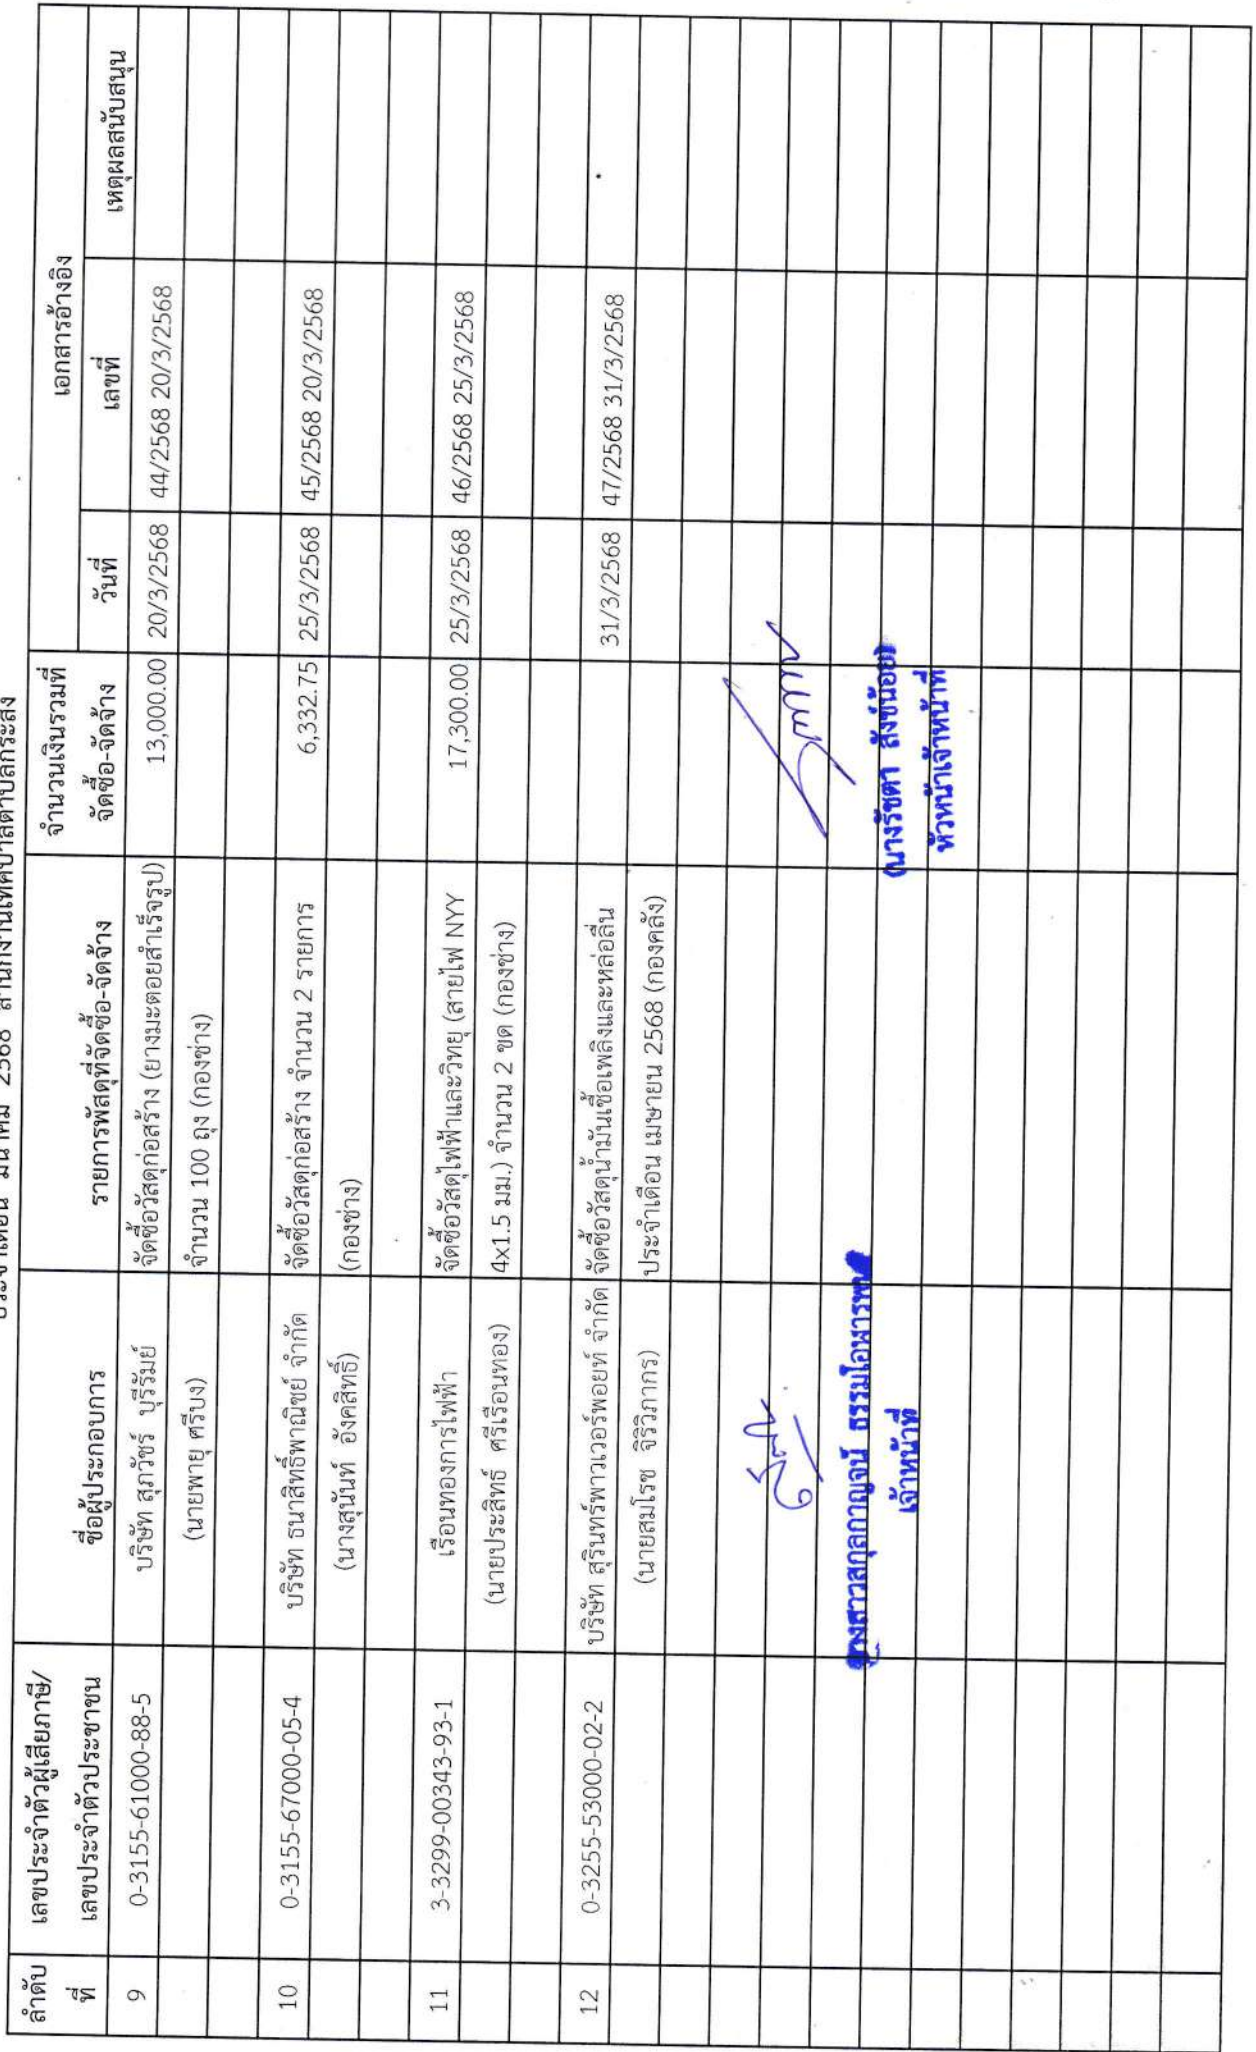 ประจำเดือน มีนาคม 2568 สำนักงานเทศบาลตำบลกระสัง
ลำดับที่ เลขประจำตัวผู้เสียภาษี/เลขประจำตัวประชาชน ชื่อผู้ประกอบการ รายการพัสดุที่จัดซื้อ-จัดจ้าง จำนวนเงินรวมที่จัดซื้อ-จัดจ้าง เอกสารอ้างอิง
วันที่ เลขที่ เหตุผลสนับสนุน
9 0-3155-61000-88-5 บริษัท สุภวัชร์ บุรีรัมย์ จัดซื้อวัสดุก่อสร้าง (ยางมะตอยสำเร็จรูป) 13,000.00 20/3/2568 44/2568 20/3/2568
(นายพายุ ศรีบง) จำนวน 100 ถุง (กองช่าง)
10 0-3155-67000-05-4 บริษัท ธนาสิทธิ์พาณิชย์ จำกัด จัดซื้อวัสดุก่อสร้าง จำนวน 2 รายการ 6,332.75 25/3/2568 45/2568 20/3/2568
(นางสุนันท์ อังคสิทธิ์) (กองช่าง)
11 3-3299-00343-93-1 เรือนทองการไฟฟ้า จัดซื้อวัสดุไฟฟ้าและวิทยุ (สายไฟ NYY 17,300.00 25/3/2568 46/2568 25/3/2568
(นายประสิทธ์ ศรีเรือนทอง) 4x1.5 มม.) จำนวน 2 ขด (กองช่าง)
12 0-3255-53000-02-2 บริษัท สุรินทร์พาวเวอร์พอยท์ จำกัด จัดซื้อวัสดุน้ำมันเชื้อเพลิงและหล่อลื่น 31/3/2568 47/2568 31/3/2568
(นายสมโรช จิริวิภากร) ประจำเดือน เมษายน 2568 (กองคลัง)
(นางรัชดา สังข์น้อย)
หัวหน้าเจ้าหน้าที่
เจ้าหน้าที่